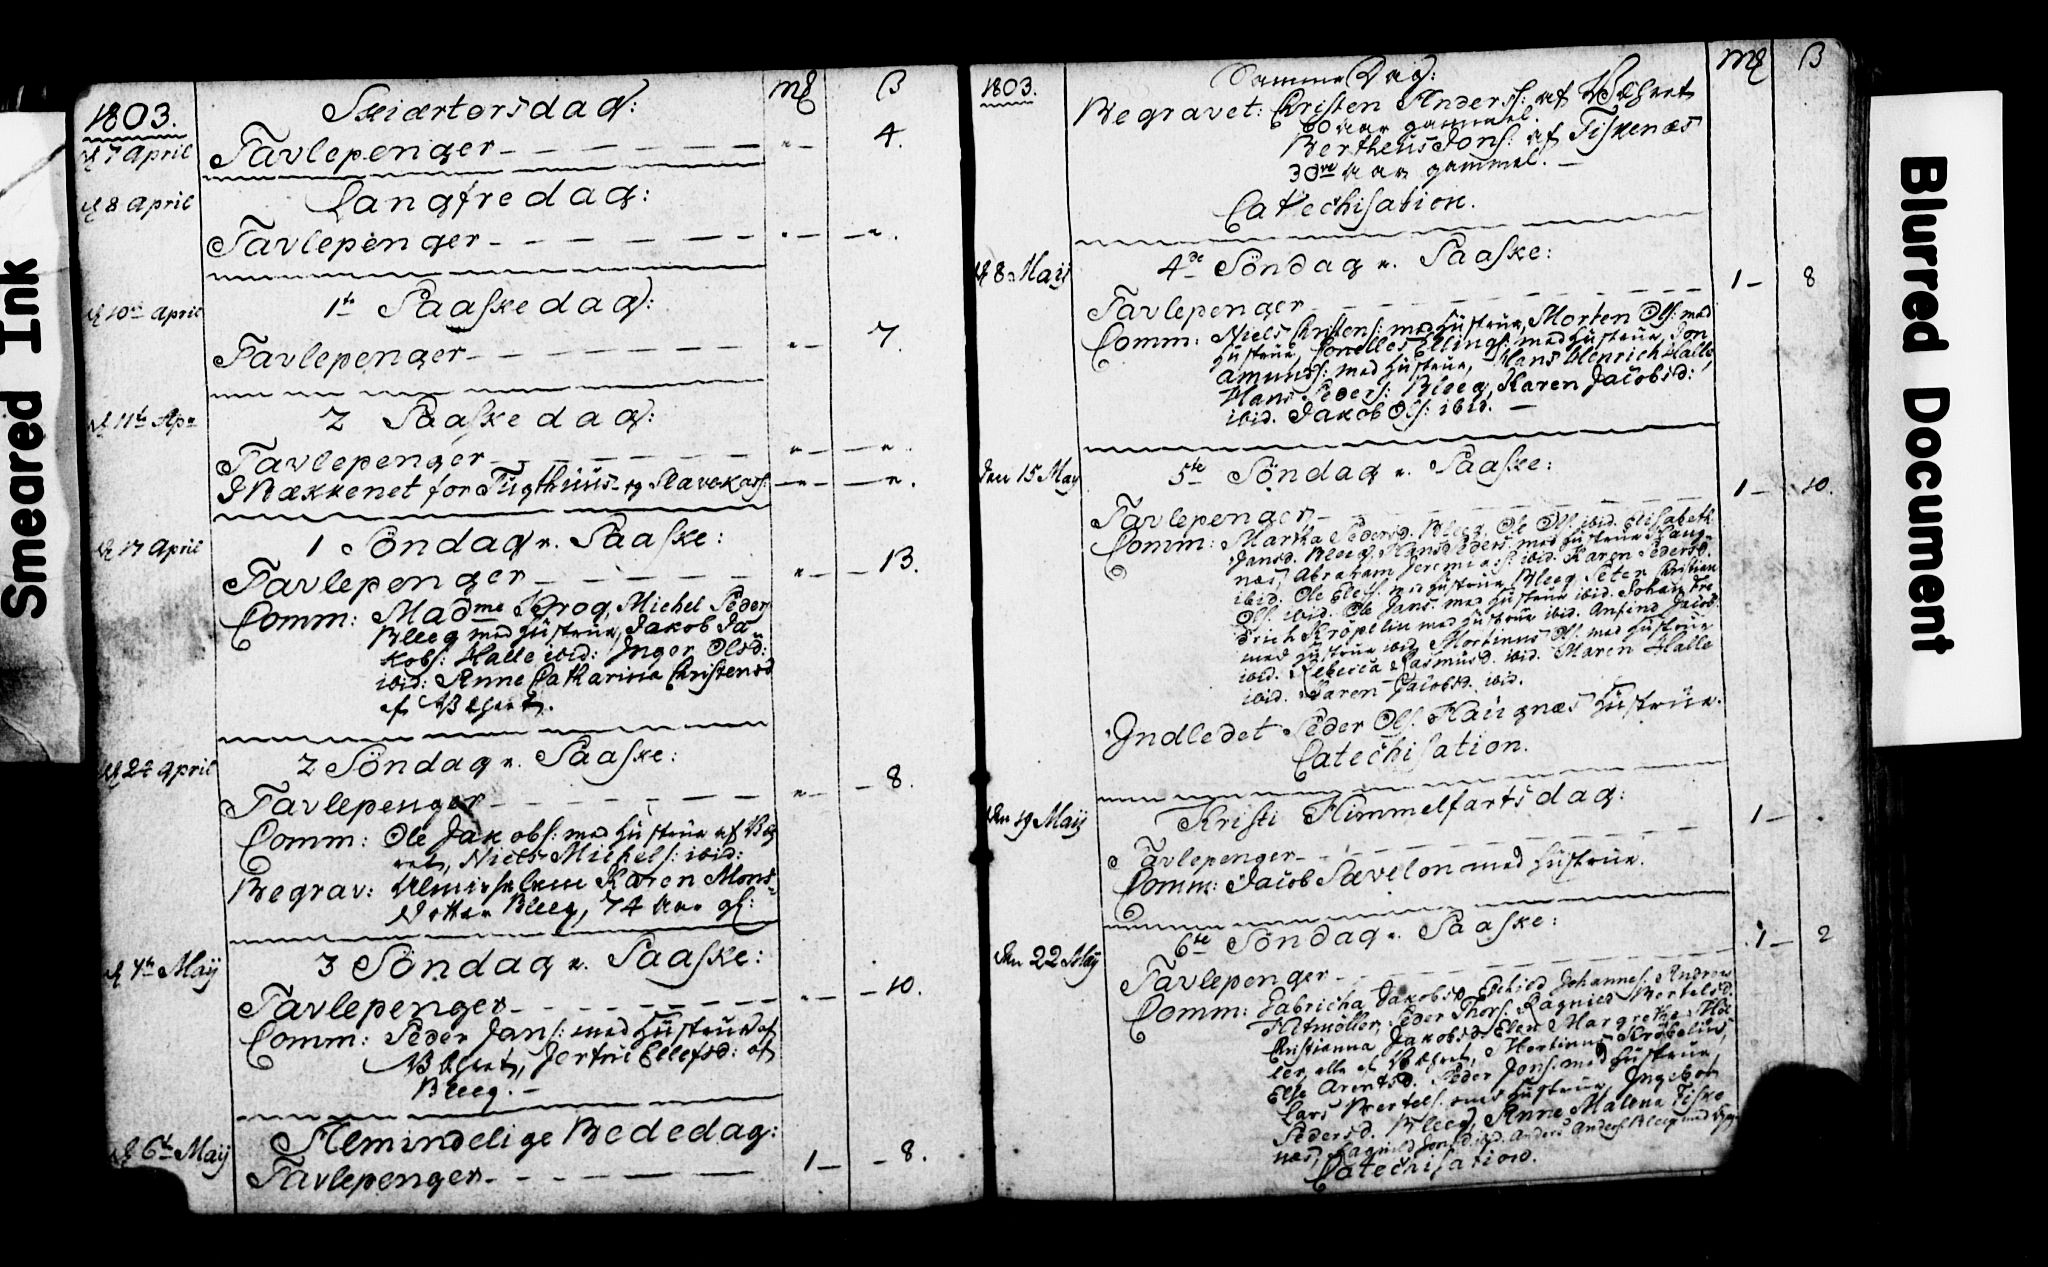 Smeared Ink
1803.
mk
β
Skiærtorsdag:
d 7 April
Tavlepenger
"
4.
d 8 April
Langfredag:
Tavlepenger
"
".
d 10de April
1te Paaskedag:
Tavlepenger
"
7.
d 11te Apr
2 Paaskedag:
Tavlepenger
"
".
I Bækkenet for Tugthuus- og Slavekass:
"
".
d 17 April
1 Söndag e. Paaske:
Tavlepenger
"
13.
Comm: Madme Krog, Michel Peders
Bleeg med Hustrue, Jakob Ja-
kobs: Halle ibid: Inger Olsd:
ibid: Anne Catharina Christensd
af
d 24 April
2 Söndag e. Paaske:
Tavlepenger
"
8.
Comm: Ole Jakobs: med Hustrue af
Niels Michels: ibid:
Begrav: Karen Mons-
Dotter Bleeg, 74 Aar gl:
May
3 Söndag e. Paaske:
Tavlepenger
"
10.
Comm: Peder Jans: med Hustrue af
Ellefsd: af
Bleeg.
d 6te May
Almindelige Bededag:
Tavlepenger
1
8.
1803.
mk
β
Samme Dag:
Begravet: Christen Anders: af
60 aar gammel.
Bertheus Jons: af Fiskenæs
aar gammel.
Catechisation.
d 8 May
4de Söndag e. Paaske:
1
8
Tavlepenger
Comm: Niels Christens: med Hustrue, Morten Ols: med
Hustrue, Ellings: med Hustrue, Jon
Amunds: med Hustrue, Hans Henrich Halle
Hans Peders: Bleeg, Karen Jacobsd:
ibid. Jakob Ols: ibid.
Den 15 May
5te Söndag e. Paaske:
1
10.
Tavlepenger
Comm: Martha Pedersd. Bleeg, Ole Ols. ibid. Elisabeth
Jansd. Bleeg, Hans Peders. med Hustrue Haug-
næs, Abraham Jeremias: ibid. Karen Pedersd.
ibid. Ole med Hustrue Bleeg, Peter Christian
Ols. ibid. Ole Jans. med Hustrue ibid. Johan Fre-
drich Kröpelin med Hustrue ibid. Anfind Jacobs
med Hustrue ibid. Mortinus Ols. med Hustrue
ibid. Rebecca Rasmusd. ibid. Maren Halle
ibid. Karen Jacobsd. ibid.
Indledet Peder Ols. Haugnæs Hustrue.
Catechisation.
Den 19 May
Kristi Himmelfartsdag:
1
.
Tavlepenger
Comm: Jacob med Hustrue.
Den 22 May
6te Söndag e. Paaske:
1
2
Tavlepenger
Comm: Jakobsd. Johannes Andreas
Peder Thors. Bertelsd.
Christianna Jakobsd. Elen Margrethe Möl-
ler, alle af Mortinus
Else Arentsd. Peder Jons. med Hustrue,
Lars Bertels. med Hustrue, Ingebor
Pedersd. Bleeg, Anne Malena Fiske-
næs, Ragnild Anders Anders.
Catechisation.
Blurred Document